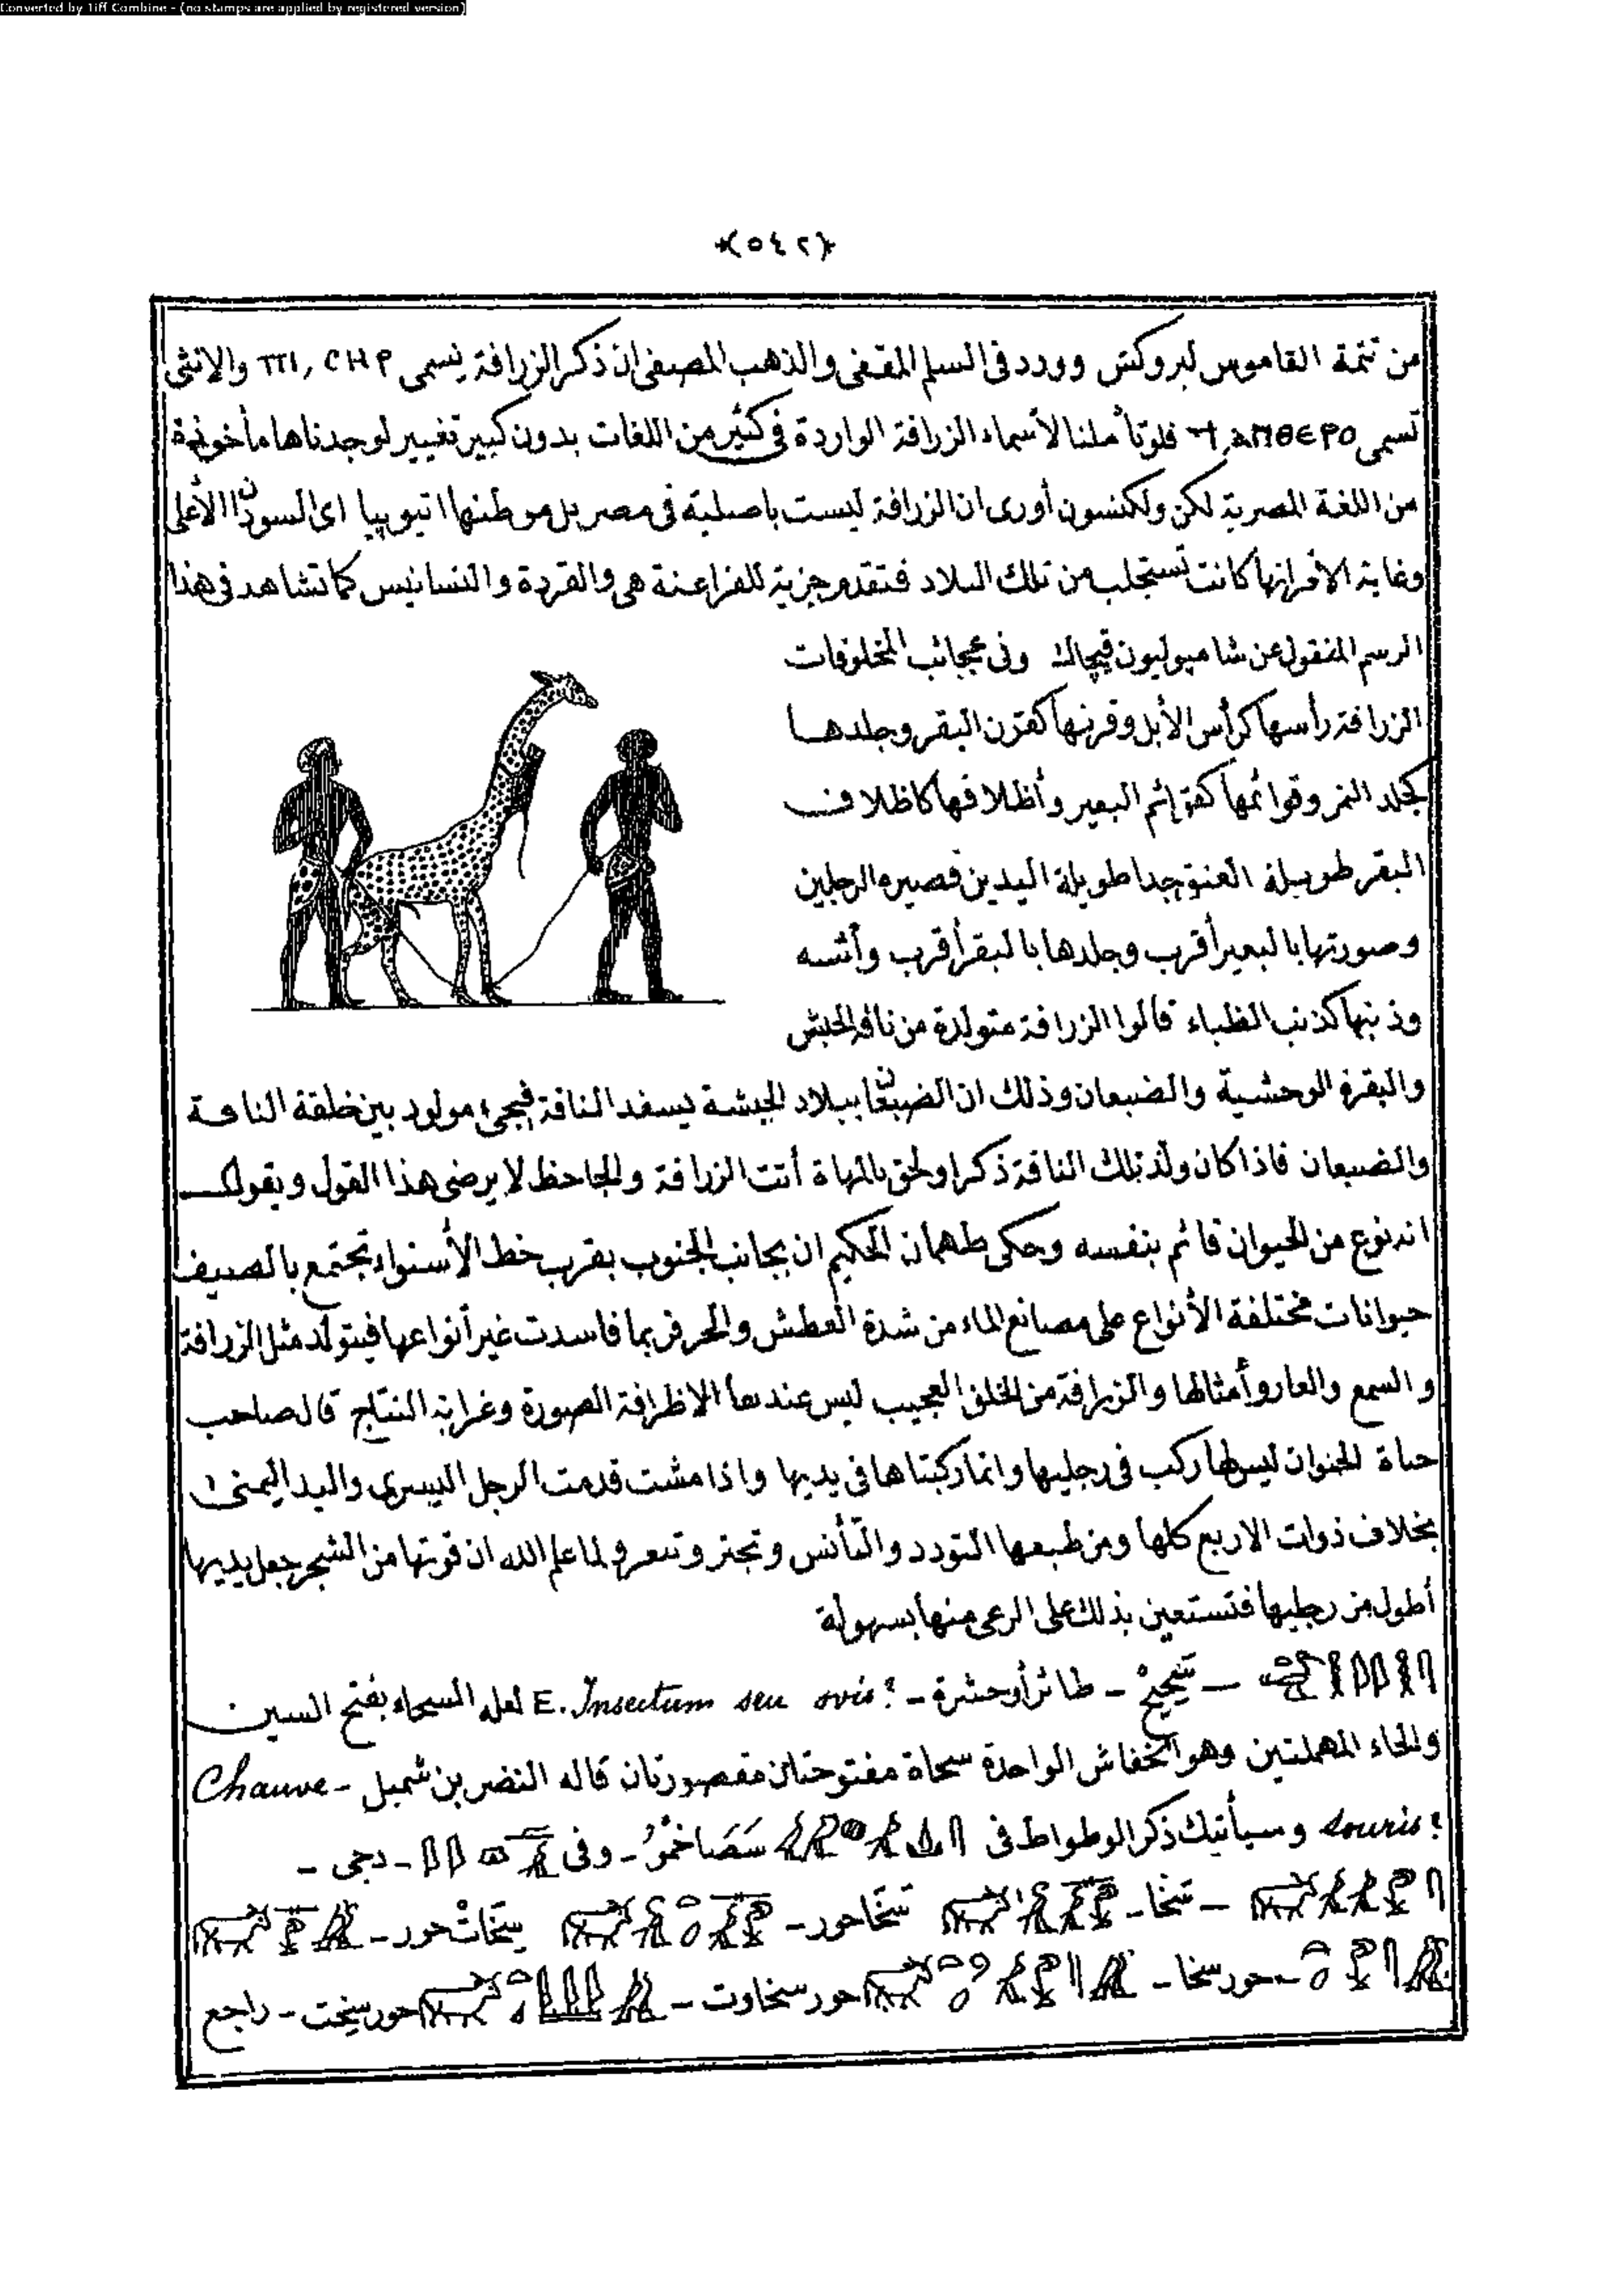 Converted by Tiff Combine - (no stamps are applied by registered version)
﴿٥٤٢﴾
من تتمة القاموس لبروكش وورد فى السلم المقفى والذهب المصفى ان ذكر الزرافة يسمى ΠΙ, СНР والانثى
تسمى فلو تأملنا لأسماء الزرافة الواردة فى كثير من اللغات بدون كبير تغيير لوجدناها مأخوذة
من اللغة المصرية لكن ولكنسون أورى ان الزرافة ليست باصلية فى مصر بل موطنها اتيوبيا اى السودان الأعلى
وغاية الأمر انها كانت تستجلب من تلك البلاد فتقدم جزية للفراعنة هى والقردة والنسانيس كما تشاهد فى هذا
الرسم المنقول عن شامبوليون فيجاك وفى عجائب المخلوقات
الزرافة رأسها كرأس الأبل وقرنها كقرن البقر وجلدها
كجلد النمر وقوائمها كقوائم البعير وأظلافها كاظلاف
البقر طويلة العنق جدا طويلة اليدين قصيرة الرجلين
وصورتها بالبعير أقرب وجلدها بالبقر أقرب وأشبه
وذنبها كذنب الظباء قالوا الزرافة متولدة من ناقة الحبش
والبقرة الوحشية والضبعان وذلك ان الضبعان ببلاد الحبشة يسفد الناقة فيجىء مولود بين خلقة الناقة
والضبعان فاذا كان ولد تلك الناقة ذكرا ولحق بالمهاة أتت الزرافة والجاحظ لا يرضى هذا القول ويقول
انه نوع من الحيوان قائم بنفسه وحكى طهمان الحكيم ان بجانب الجنوب بقرب خط الأستواء تجتمع بالصيف
حيوانات مختلفة الأنواع على مصانع الماء من شدة العطش والحر فربما فاسدت غير أنواعها فيتولد مثل الزرافة
و السمع والعار وأمثالها والزرافة من الخلق العجيب ليس عندها الا ظرافة الصورة وغرابة النتاج قال صاحب
حياة الحيوان ليس لها ركب فى رجليها وانما ركبتاها فى يديها واذا مشت قدمت الرجل اليسرى واليد اليمنى
بخلاف ذوات الاربع كلها ومن طبعها التودد والتأنس وتجتر وتبعر ولما علم الله ان قوتها من الشجر جعل يديها
أطول من رجليها فتستعين بذلك على الرعى منها بسهولة
طائر أو حشرة - E. Insectum seu avis? لعله السحاء بفتح السين
والحاء المهملتين وهو الخفاش الواحدة سحاة مفتوحتان مقصورتان قاله النضر بن شميل - Chauve
souris? وسيأتيك ذكر الوطواط فى - وفى - دجى -
- سخا - سخاحور - سخات حور -
- حورسخا - حورسخاوت - حورسخت - راجع